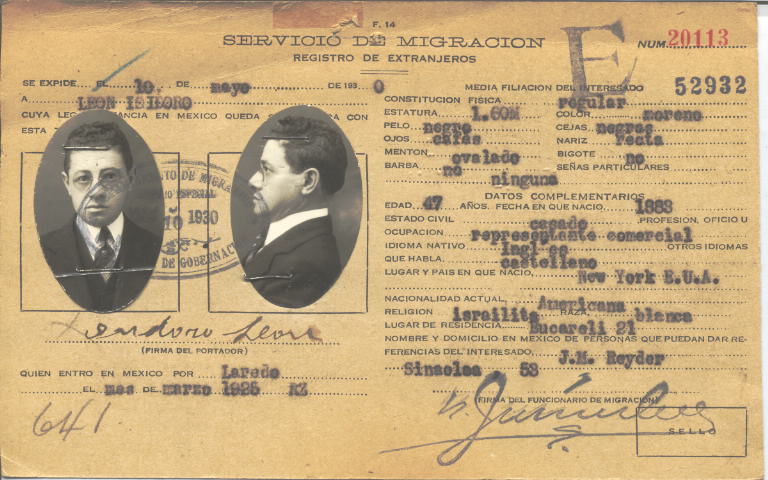 F. 14
SERVICIO DE MIGRACION
REGISTRO DE EXTRANJEROS
NUM. 20113
E
52932
SE EXPIDE EL 10. DE mayo DE 193 0
A LEON ISIDORO
CUYA LEGAL ESTANCIA EN MEXICO QUEDA CON
ESTA
MIGRA
ESPECIAL
1930
DE GOBERNAC
(FIRMA DEL PORTADOR)
QUIEN ENTRO EN MEXICO POR Laredo
EL mes DE marzo 1925 RZ
641
MEDIA FILIACION DEL INTERESADO
CONSTITUCION FISICA regular
ESTATURA 1.60M COLOR moreno
PELO negro CEJAS negras
OJOS cafes NARIZ recta
MENTON ovalado BIGOTE no
BARBA no SEÑAS PARTICULARES
ninguna
DATOS COMPLEMENTARIOS
EDAD 47 AÑOS. FECHA EN QUE NACIO 1883
ESTADO CIVIL casado PROFESION, OFICIO U
OCUPACION representante comercial
IDIOMA NATIVO ingles OTROS IDIOMAS
QUE HABLA castellano
LUGAR Y PAIS EN QUE NACIO, New York E.U.A.
NACIONALIDAD ACTUAL Americana
RELIGION israilita RAZA blanca
LUGAR DE RESIDENCIA Bucareli 21
NOMBRE Y DOMICILIO EN MEXICO DE PERSONAS QUE PUEDAN DAR RE-
FERENCIAS DEL INTERESADO, J.M. Reyder
Sinaloa 53
(FIRMA DEL FUNCIONARIO DE MIGRACION)
SELLO